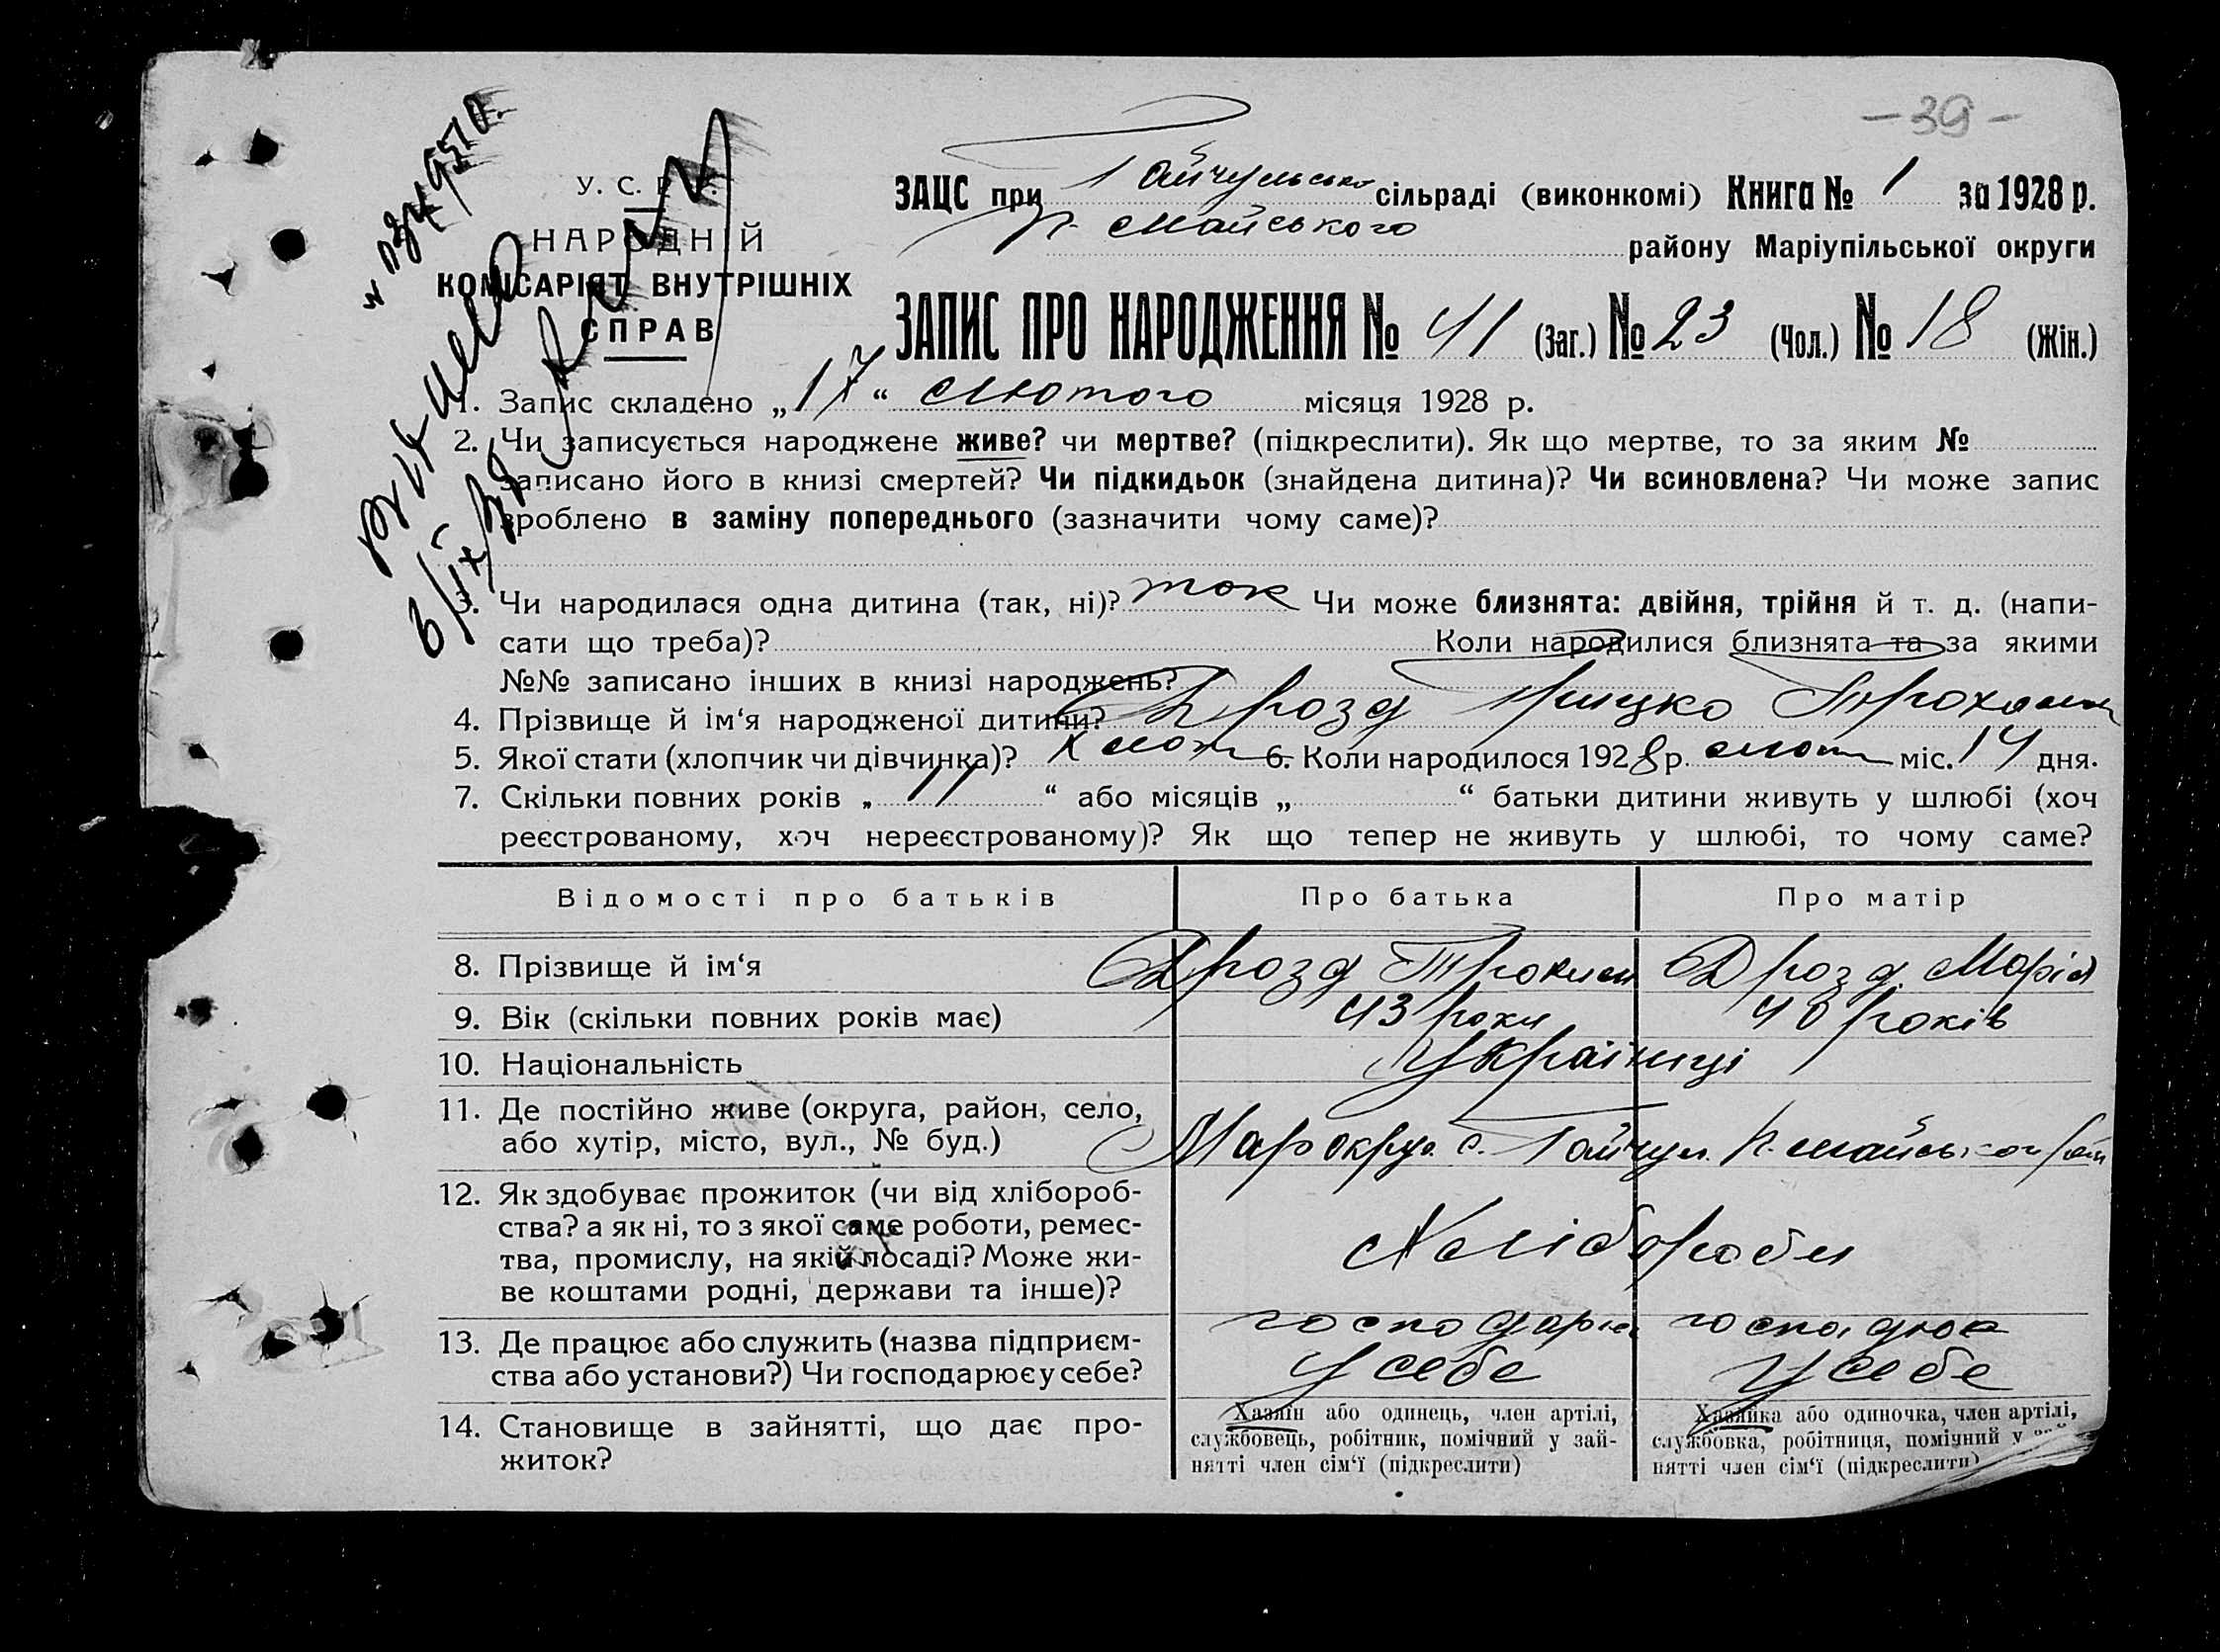 -39-
У. С. Р. Р.
НАРОДНІЙ
КОМІСАРІЯТ ВНУТРІШНІХ
СПРАВ
ЗАЦС при Гайчульській сільраді (виконкомі) Книга № 1 за 1928 р.
П. Майського району Маріупільської округи
ЗАПИС ПРО НАРОДЖЕННЯ № 41 (Заг.) № 23 (Чол.) № 18 (Жін.)
1. Запис складено „17“ лютого місяця 1928 р.
2. Чи записується народжене живе? чи мертве? (підкреслити). Як що мертве, то за яким №
записано його в книзі смертей? Чи підкидьок (знайдена дитина)? Чи всиновлена? Чи може запис
зроблено в заміну попереднього (зазначити чому саме)?
3. Чи народилася одна дитина (так, ні)? так Чи може близнята: двійня, трійня й т. д. (напи-
сати що треба)? Коли народилися близнята та за якими
№№ записано інших в книзі народжень?
4. Прізвище й ім‘я народженої дитини? Дрозд Грицко
5. Якої стати (хлопчик чи дівчинка)? хлоп 6. Коли народилося 1928 р. лют міс. 14 дня.
7. Скільки повних років „ 11 “ або місяців „ “ батьки дитини живуть у шлюбі (хоч
реєстрованому, хоч нереєстрованому)? Як що тепер не живуть у шлюбі, то чому саме?
Відомості про батьків Про батька Про матір
8. Прізвище й ім‘я Дрозд Трохим Дрозд Марія
9. Вік (скільки повних років має) 43 роки 40 років
10. Національність Українці
11. Де постійно живе (округа, район, село,
або хутір, місто, вул., № буд.) Мар округ. с. Гайчул П. Майського рай
12. Як здобуває прожиток (чи від хлібороб-
ства? а як ні, то з якої саме роботи, ремес-
тва, промислу, на якій посаді? Може жи-
ве коштами родні, держави та інше)?
Хлібороби
13. Де працює або служить (назва підприєм-
ства або установи?) Чи господарює у себе?
у себе у себе
14. Становище в зайнятті, що дає про-
житок?
Хазяїн або одинець, член артілі,
службовець, робітник, помічний у зай-
нятті член сім‘ї (підкреслити)
Хазяйка або одиночка, член артілі,
службовка, робітниця, помічний у
нятті член сім‘ї (підкреслити)